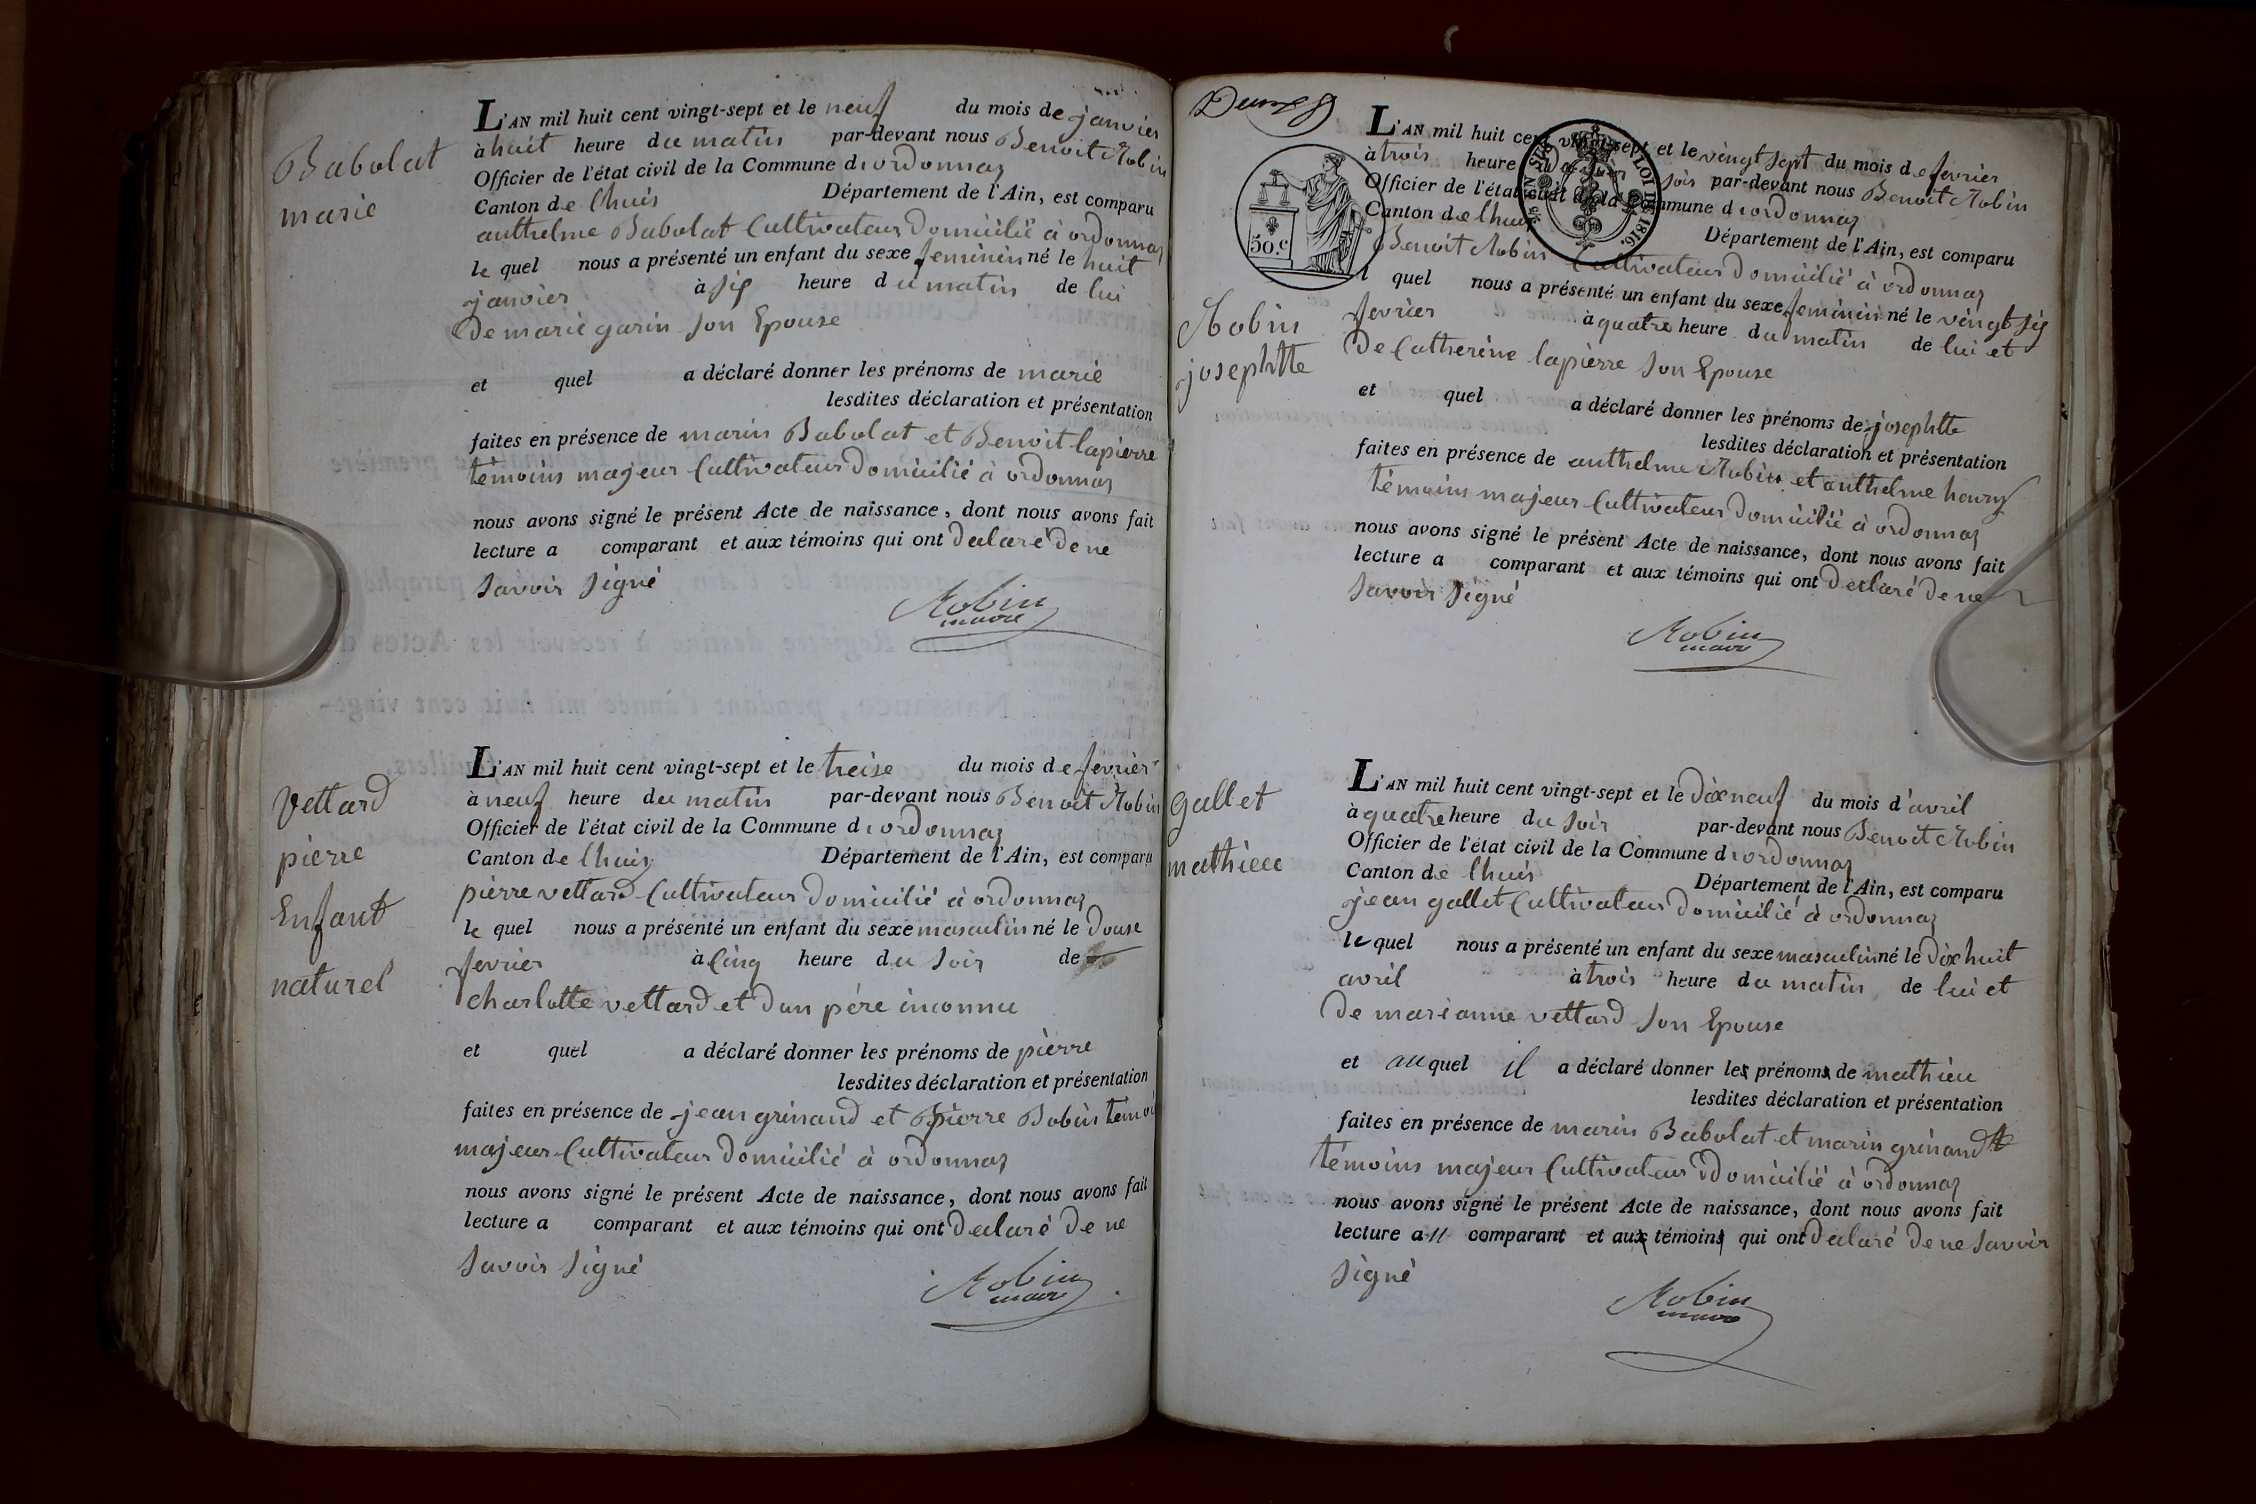 Babolat
marie
L'AN mil huit cent vingt-sept et le neuf du mois de janvier
à huit heure du matin par-devant nous Benoit Robin
Officier de l'état civil de la Commune d'ordonnaz
Canton de lhuis Département de l'Ain, est comparu
anthelme Babolat Cultivateur domicilié à ordonnaz
le quel nous a présenté un enfant du sexe feminin né le huit
janvier à six heure du matin de lui
De marie garin son Epouse
et quel a déclaré donner les prénoms de marie
lesdites déclaration et présentation
faites en présence de marin Babolat et Benoit lapierre
témoins majeur Cultivateur domicilié à ordonnaz
nous avons signé le présent Acte de naissance, dont nous avons fait
lecture a comparant et aux témoins qui ont declaré de ne
savoir signé
Robin
maire
vettard
pierre
Enfant
naturel
L'AN mil huit cent vingt-sept et le treise du mois de fevrier
à neuf heure du matin par-devant nous Benoit Robin
Officier de l'état civil de la Commune d'ordonnaz
Canton de lhuis Département de l'Ain, est comparu
pierre vettard Cultivateur domicilié à ordonnaz
le quel nous a présenté un enfant du sexe masculin né le douse
fevrier à Cinq heure du soir de
charlotte vettard et dun pére inconnu
et quel a déclaré donner les prénoms de pierre
lesdites déclaration et présentation
faites en présence de jean grinand et pierre Bobin témoi
majeur Cultivateur domicilié à ordonnaz
nous avons signé le présent Acte de naissance, dont nous avons fait
lecture a comparant et aux témoins qui ont declaré de ne
savoir signé
Robin
maire
50.c
TIMB. EN SUS LOI DE 1816.
Robin
josephtte
L'AN mil huit cent vingt-sept et le vingt sept du mois de fevrier
à trois heure du soir par-devant nous Benoit Robin
Officier de l'état civil de la Commune d'ordonnaz
Canton de lhuis Département de l'Ain, est comparu
Benoit Robin Cultivateur domicilié à ordonnaz
l quel nous a présenté un enfant du sexe feminin né le vingt six
fevrier à quatre heure du matin de lui et
De Catherine lapierre son Epouse
et quel a déclaré donner les prénoms de josephtte
lesdites déclaration et présentation
faites en présence de anthelme Robin et anthelme houry
témoins majeur Cultivateur domicilié à ordonnaz
nous avons signé le présent Acte de naissance, dont nous avons fait
lecture a comparant et aux témoins qui ont declaré de ne
savoir signé
Robin
maire
gallet
mathieu
L'AN mil huit cent vingt-sept et le dix neuf du mois d'avril
à quatre heure du soir par-devant nous Benoit Robin
Officier de l'état civil de la Commune d'ordonnaz
Canton de lhuis Département de l'Ain, est comparu
jean gallet Cultivateur domicilié à ordonnaz
le quel nous a présenté un enfant du sexe masculin né le dix huit
avril à trois heure du matin de lui et
De marianne vettard son Epouse
et auquel il a déclaré donner les prénoms de mathieu
lesdites déclaration et présentation
faites en présence de marin Babolat et marin grinand
témoins majeur Cultivateur domicilié à ordonnaz
nous avons signé le présent Acte de naissance, dont nous avons fait
lecture au comparant et aux témoins qui ont declaré de ne savoir
signé
Robin
maire